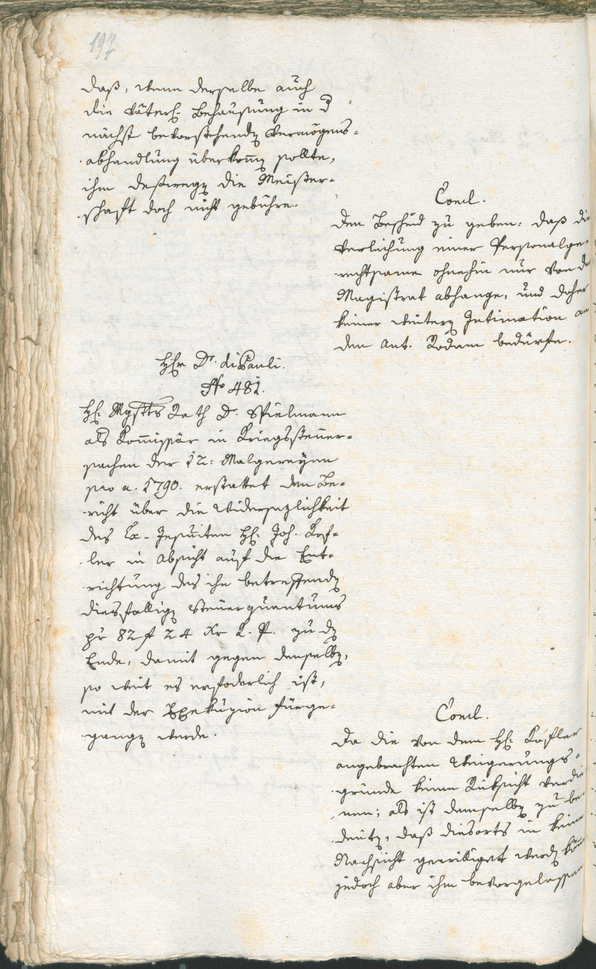 197
daß, wenn derselbe auch
die väterl. Behausung in d
nächst bevorstehendn Vermögens-
abhandlung überkomn sollte,
ihm deßwegn die Meister-
schaft doch nicht gebühre.
Concl.
Den Bescheid zu geben: daß die
Verleihung einer Personalge-
rechtsame ohnehin nur von
Magistrat abhange, und daher
keiner weitern Intimation an
den Ant. Rodam bedürfe.
Hhr Dr. di Pauli.
No 481.
Hh. Mgstts Rath Dr. Spielmann
als Kommissär in Kriegssteuer-
sachen der 12: Malgereyen
pro a. 1790. erstattet den Be-
richt über die Widersezlichkeit
des Ex-Jesuiten Hh. Joh. Kof-
ler in Absicht auf die Ent-
richtung des ihn betreffendn
diesfälligen Steuerquantums
pr 82 f 24 Xr zu dem
Ende, damit gegen denselbn,
so weit es erfoderlich ist,
mit der Exekuzion fürge-
gangn werde.
Concl.
Da die von dem Hh. Kofler
angebrachten Weigerungs-
gründe keine Rüksicht verdie
nen; als ist demselbn zu be
deutn, daß diesorts in keine
Nachsicht gewilliget werdn kön
jedoch aber ihm bevorgelassen